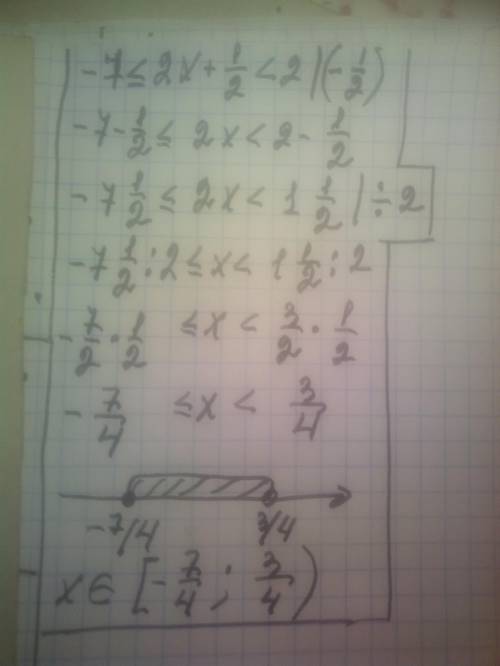 -7 ≤ 2x + 1/2 < 2 |(-1/2)
-7 - 1/2 ≤ 2x < 2 - 1/2
-7 1/2 ≤ 2x < 1 1/2 | ÷ 2
-7 1/2 : 2 ≤ x < 1 1/2 : 2
-7/2 · 1/2 ≤ x < 3/2 · 1/2
-7/4 ≤ x < 3/4
-7/4 3/4
x ∈ [-7/4 ; 3/4)